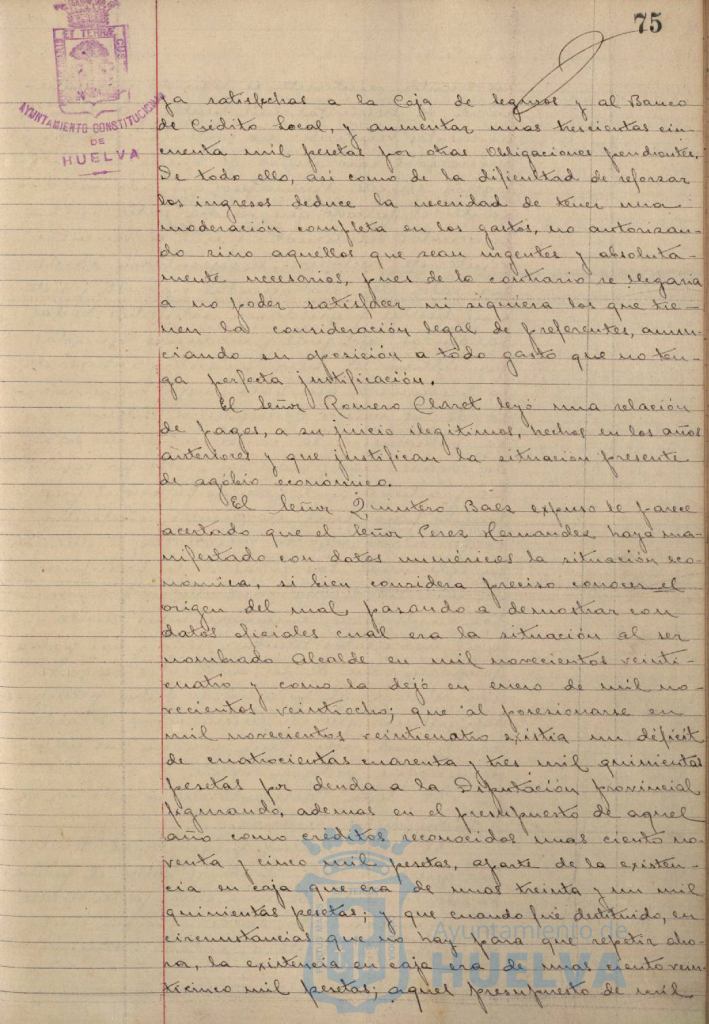 75
ET TERRÆ CUS
AYUNTAMIENTO CONSTITUCIONAL
DE
HUELVA
ya satisfechas a la Caja de Seguros y al Banco
de Crédito Local, y aumentar unas trescientas cin-
cuenta mil pesetas por otras obligaciones pendientes.
De todo ello, asi como de la dificultad de reforzar
los ingresos deduce la necesidad de tener una
moderación completa en los gastos, no autorizan-
do sino aquellos que sean urgentes y absoluta-
mente necesarios, pues de lo contrario se llegaria
a no poder satisfacer ni siquiera los que tie-
nen la consideración legal de preferentes, anun-
ciando su oposición a todo gasto que no ten-
ga perfecta justificación.
El Señor Romero Claret leyó una relación
de pagos, a su juicio ilegitimos, hechos en los años
anteriores y que justifican la situación presente
de agobio económico.
El Señor Quintero Báez expuso le parece
acertado que el Señor Perez Hernandez haya ma-
nifestado con datos numéricos la situación eco-
nómica, si bien considera preciso conocer el
origen del mal, pasando a demostrar con
datos oficiales cual era la situación al ser
nombrado Alcalde en mil novecientos veinti-
cuatro y como la dejó en enero de mil no-
vecientos veintiocho; que al posesionarse en
mil novecientos veinticuatro existia un déficit
de cuatrocientas cuarenta y tres mil quinientas
pesetas por deuda a la Diputación provincial
figurando, ademas en el presupuesto de aquel
año como créditos reconocidos unas ciento no-
venta y cinco mil pesetas, aparte de la existen-
cia en caja que era de unas treinta y un mil
quinientas pesetas; y que cuando fué destituido, en
circunstancias que no hay para que repetir aho-
ra, la existencia en caja era de unas ciento vein-
ticinco mil pesetas; aquel presupuesto de mil
Ayuntamiento de
HUELVA